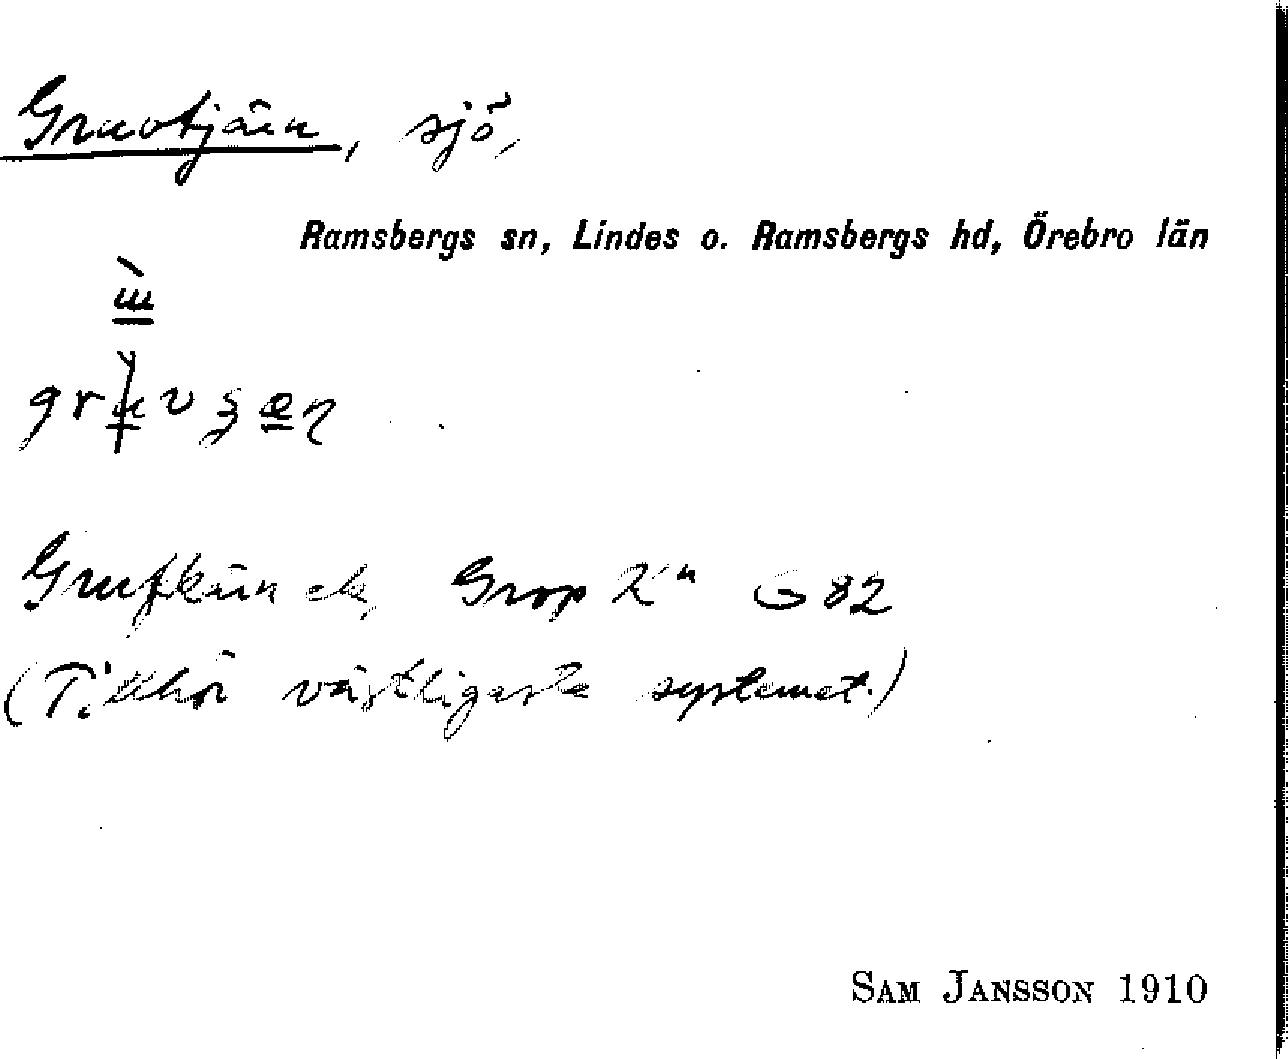 Gruvtjärn, sjö,
Ramsbergs sn, Lindes o. Ramsbergs hd, Örebro län
Grufkärn ek, Grop Kn G 82
(Tillhör västligaste systemet.)
SAM JANSSON 1910